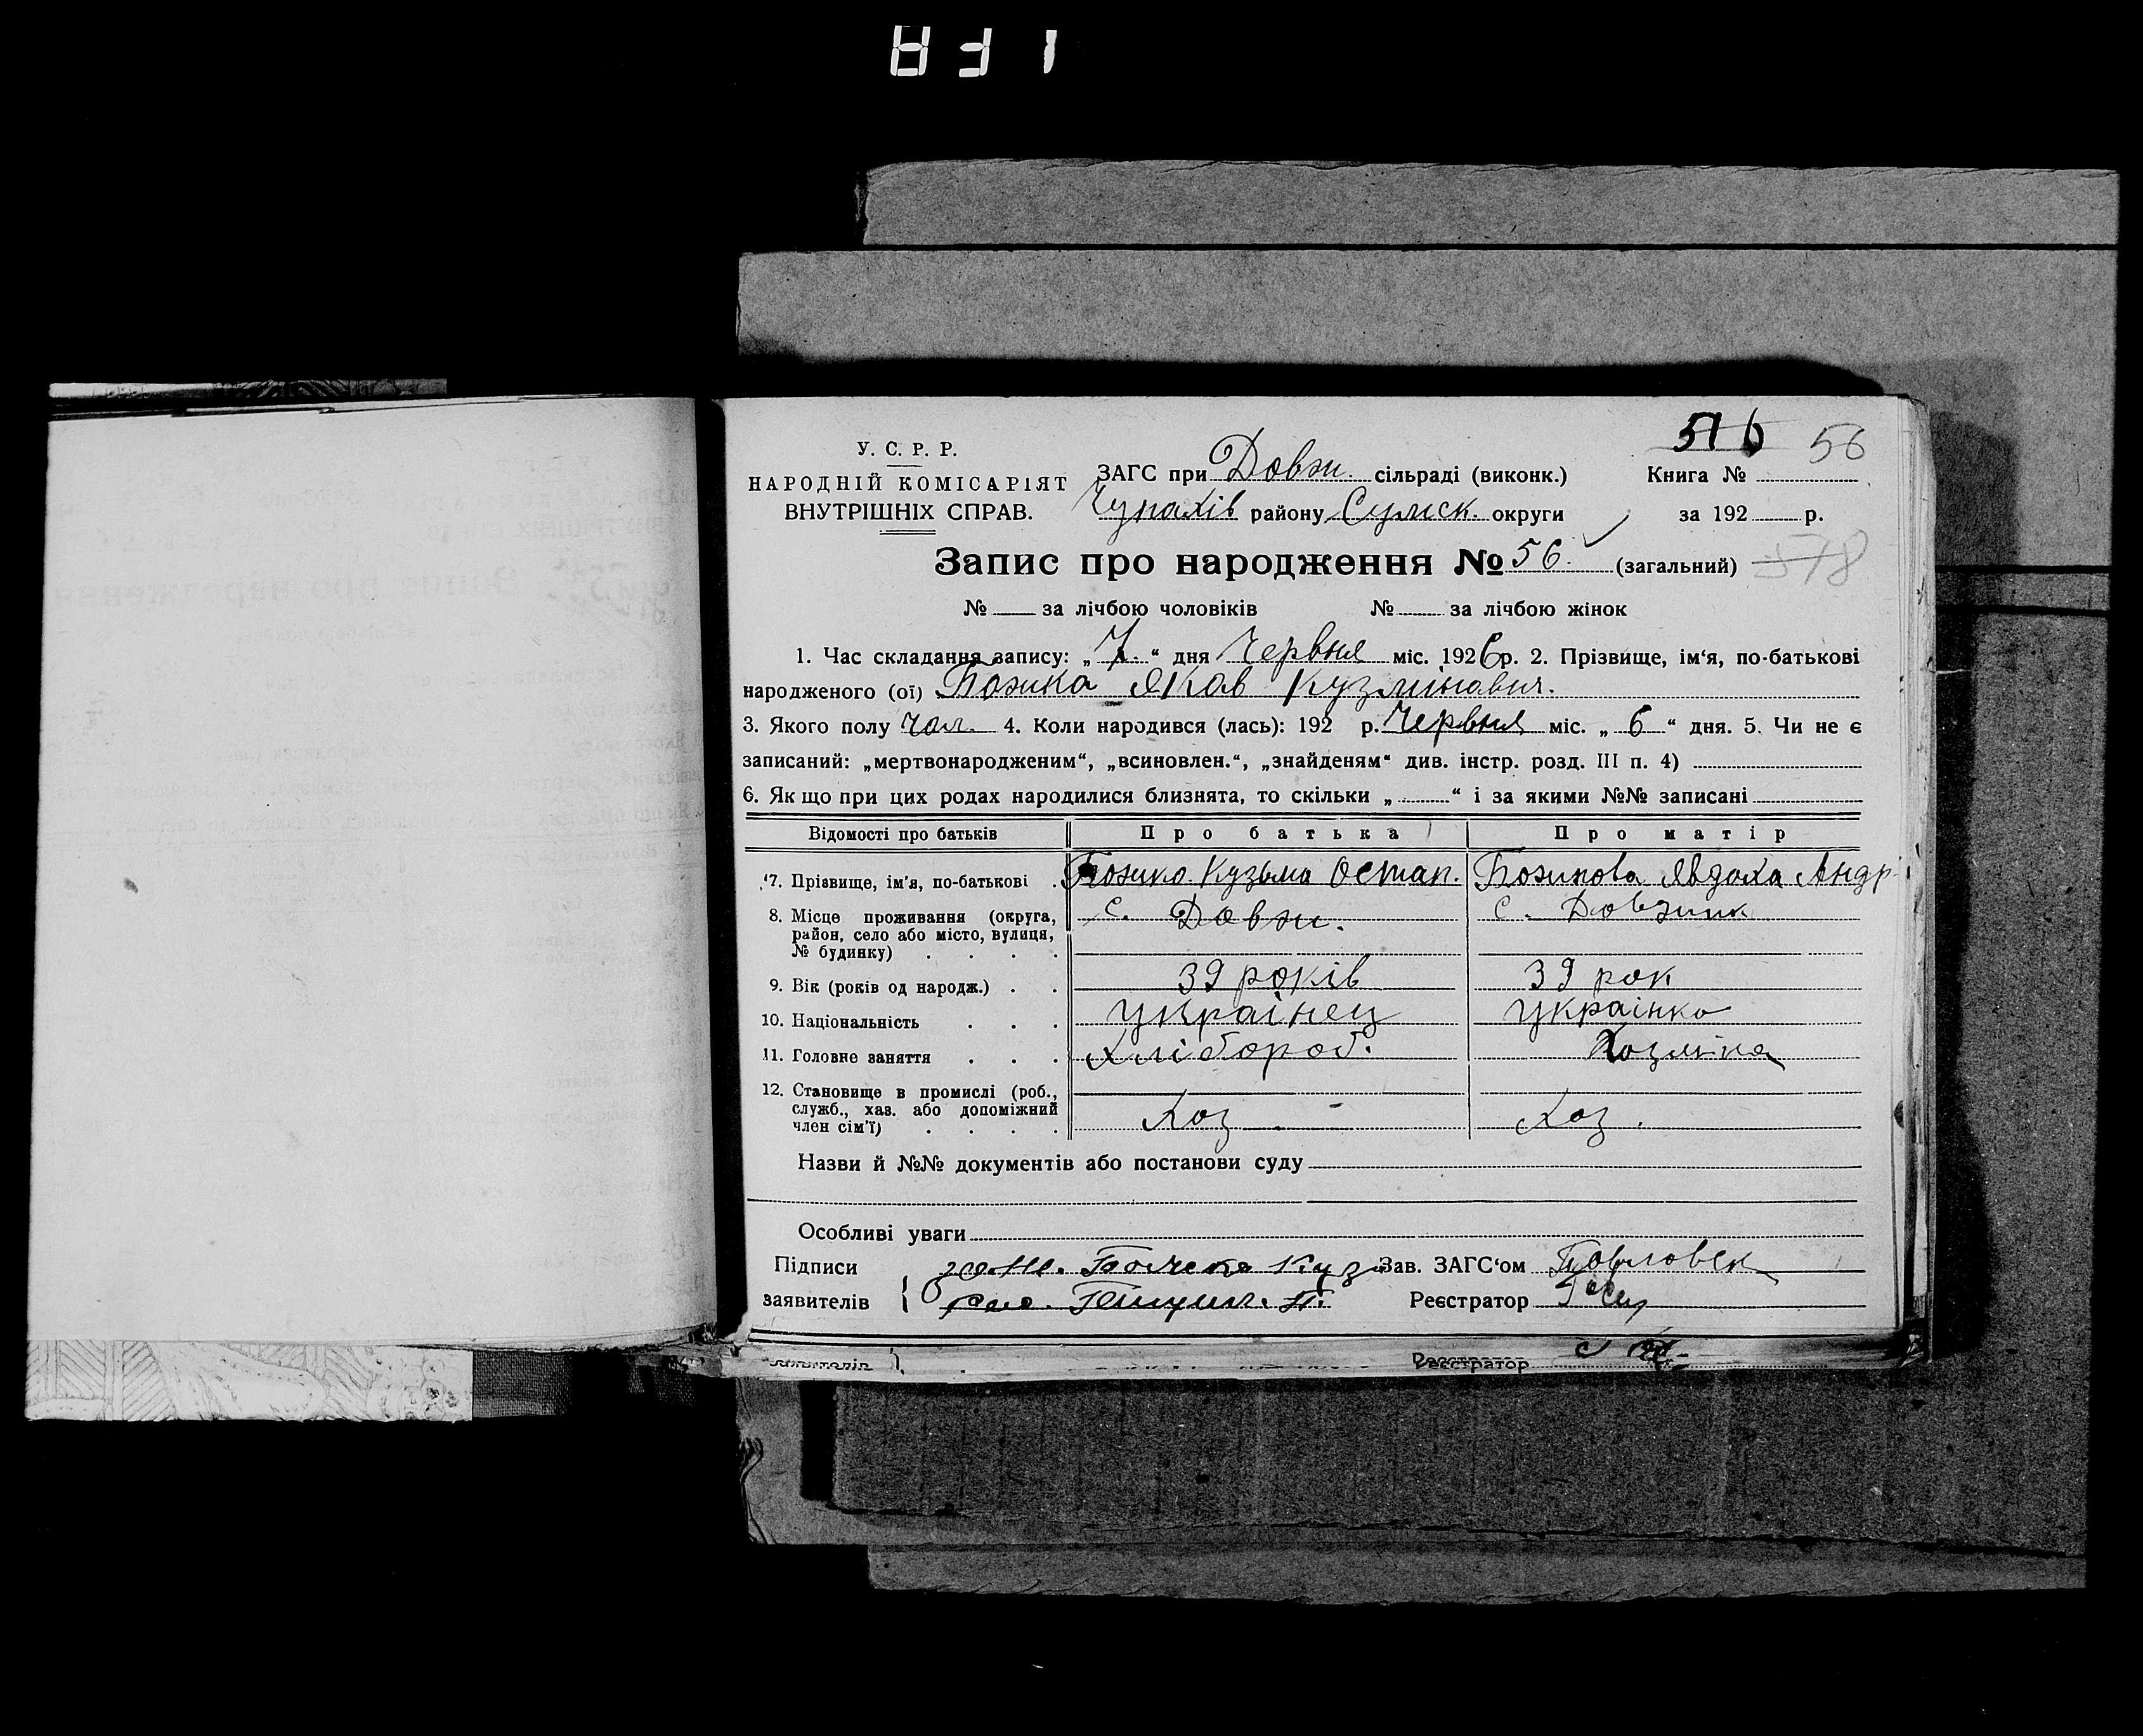 831
516 56
У. С. Р. Р.
НАРОДНІЙ КОМІСАРІЯТ
ВНУТРІШНІХ СПРАВ.
ЗАГС при Довж. сільраді (виконк.)
Чупахів району Сумск. округи
Книга №
за 192 р.
Запис про народження № 56. (загальний) 578
№ за лічбою чоловіків № за лічбою жінок
1. Час складання запису: „7.“ дня Червня міс. 1926 р. 2. Прізвище, ім‘я, по-батькові
народженого (ої) Божика Яков Кузьмінович.
3. Якого полу чол. 4. Коли народився (лась): 192 р. Червня міс. „6“ дня. 5. Чи не є
записаний: „мертвонародженим“, „всиновлен.“, „знайденям“ див. інстр. розд. III п. 4)
6. Якщо при цих родах народилися близнята, то скільки „ “ і за якими №№ записані
Відомості про батьків Про батька Про матір
7. Прізвище, ім‘я, по-батькові Божико Кузьма Остап. Божикова Явдоха Андр
8. Місце проживання (округа, район, село або місто, вулиця, № будинку) с. Довж. с. Довжик
9. Вік (років од народж.) 39 років 39 рок
10. Національність українец українко
11. Головне заняття Хлібороб. Хозяіка
12. Становище в промислі (роб., служб., хаз. або допоміжний член сім‘ї) Хоз Хоз.
Назви й №№ документів або постанови суду
Особливі уваги
Підписи Куз Зав. ЗАГС‘ом
заявителів { Реєстратор
Реєстратор